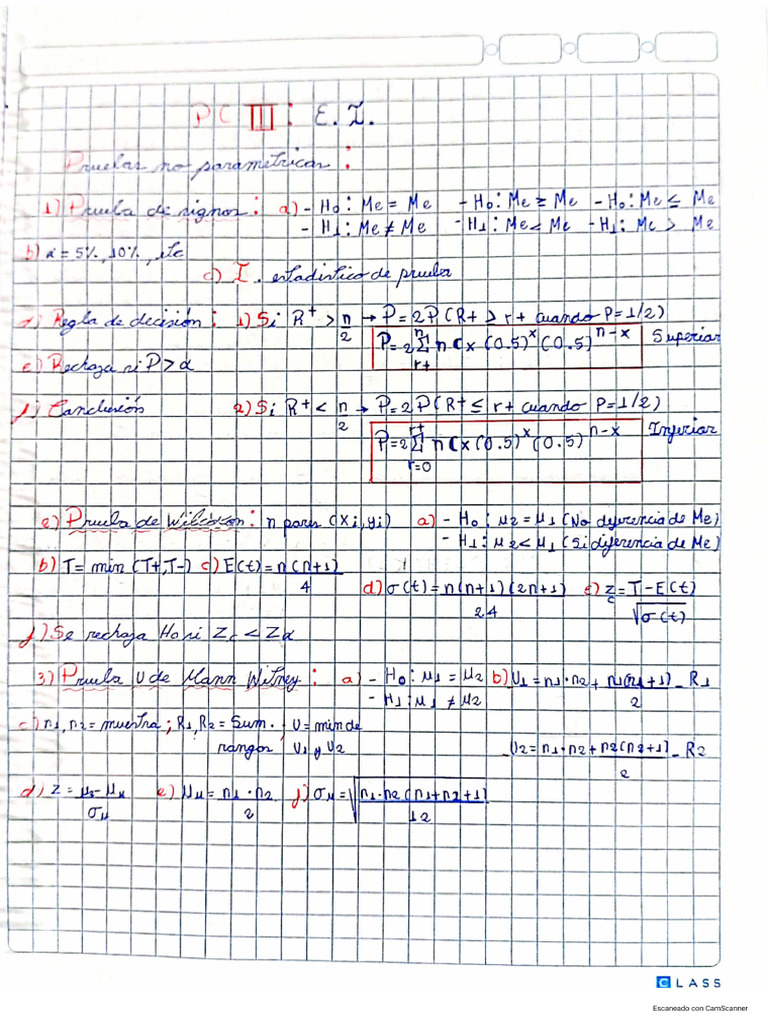 PC III: E.I.
Pruebas no parametricas:
1) Prueba de signos: a) - H₀: Me = Me - H₀: Me ≥ Me - H₀: Me ≤ Me
- H₁: Me ≠ Me - H₁: Me < Me - H₁: Me > Me
b) α = 5%, 10%, etc
c) I. estadistico de prueba
d) Regla de decisión: 1) Si R⁺ > n/2 → P = 2P(R+ ≥ r+ cuando P=1/2)
P = 2 Σ(r+, n) n C x (0.5)^x (0.5)^(n-x) Superior
e) Rechaza si P > α
f) Conclusión 2) Si R⁺ < n/2 → P = 2P(R⁺ ≤ r+ cuando P=1/2)
P = 2 Σ(r=0, r+) n C x (0.5)^x (0.5)^(n-x) Inferior
2) Prueba de Wilcoxon: n pares (xi, yi) a) - H₀: μ2 = μ1 (No diferencia de Me)
- H₁: μ2 < μ1 (Si diferencia de Me)
b) T = min (T+, T-) c) E(t) = n(n+1)/4
d) σ(t) = n(n+1)(2n+1)/24 e) Zc = T - E(t)/√σ(t)
f) Se rechaza Ho si Zc < Zα
3) Prueba U de Mann Witney: a) - H₀: μ1 = μ2 b) U1 = n1·n2 + n1(n1+1)/2 - R1
- H₁: μ1 ≠ μ2
c) n1, n2 = muestra; R1, R2 = Sum. rangos U = min de U1 y U2
U2 = n1·n2 + n2(n2+1)/2 - R2
d) Z = μs - μu/σu e) μu = n1·n2/2 f) σu = √n1·n2(n1+n2+1)/12
CLASS
Escaneado con CamScanner